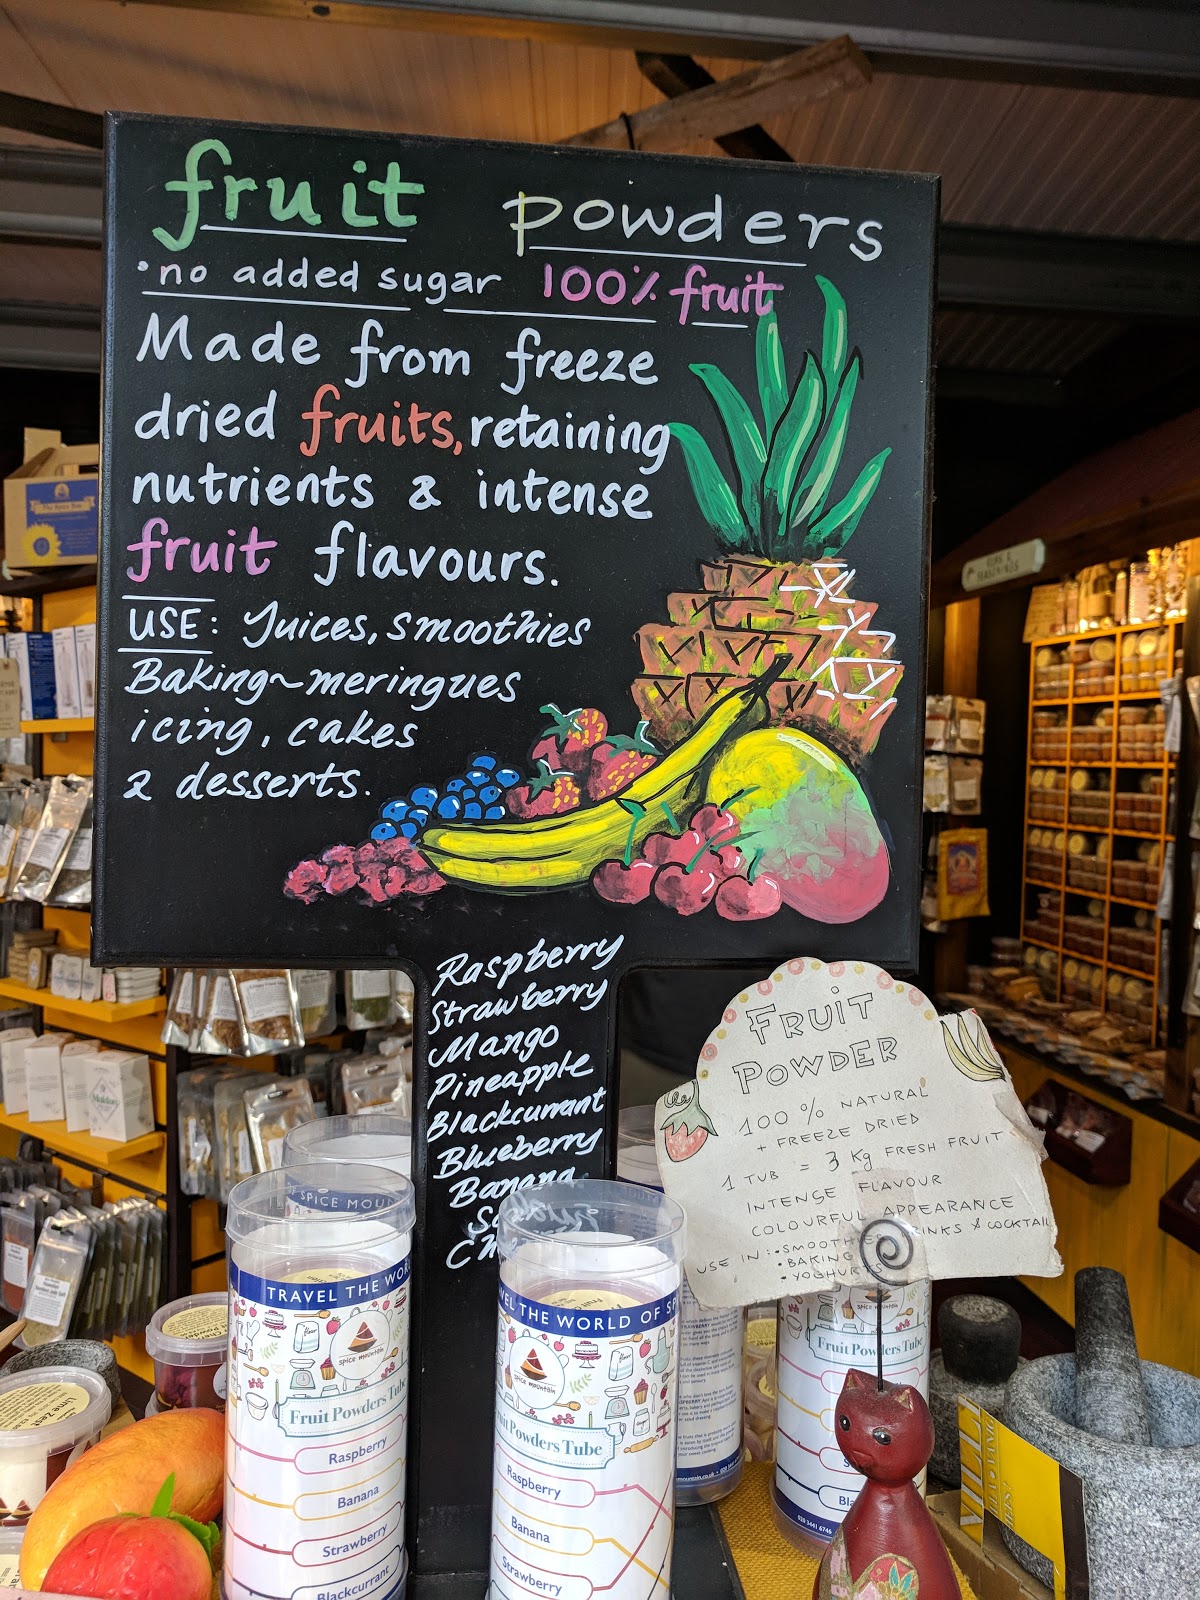 fruit powders
• no added sugar 100% fruit
Made from freeze
dried fruits, retaining
nutrients & intense
fruit flavours.
USE: Juices, smoothies
Baking~meringues
icing, cakes
& desserts.
Raspberry
Strawberry
Mango
Pineapple
Blackcurrant
Blueberry
Banana
FRUIT
POWDER
100% NATURAL
+ FREEZE DRIED
1 TUB = 3 Kg FRESH FRUIT
INTENSE FLAVOUR
COLOURFUL APPEARANCE
USE IN: • SMOOTHIE RINKS & COCKTAIL
• BAKING
• YOGHURTS
TRAVEL THE WOR
spice mountain
Fruit Powders Tube
Raspberry
Banana
Strawberry
Blackcurrant
VEL THE WORLD OF SP
spice mountain
Fruit Powders Tube
Raspberry
Banana
Strawberry
Fruit Powders Tube
OF SPICE MOUN
The Spice Box
Maldon
Lime Zest
SEASONINGS